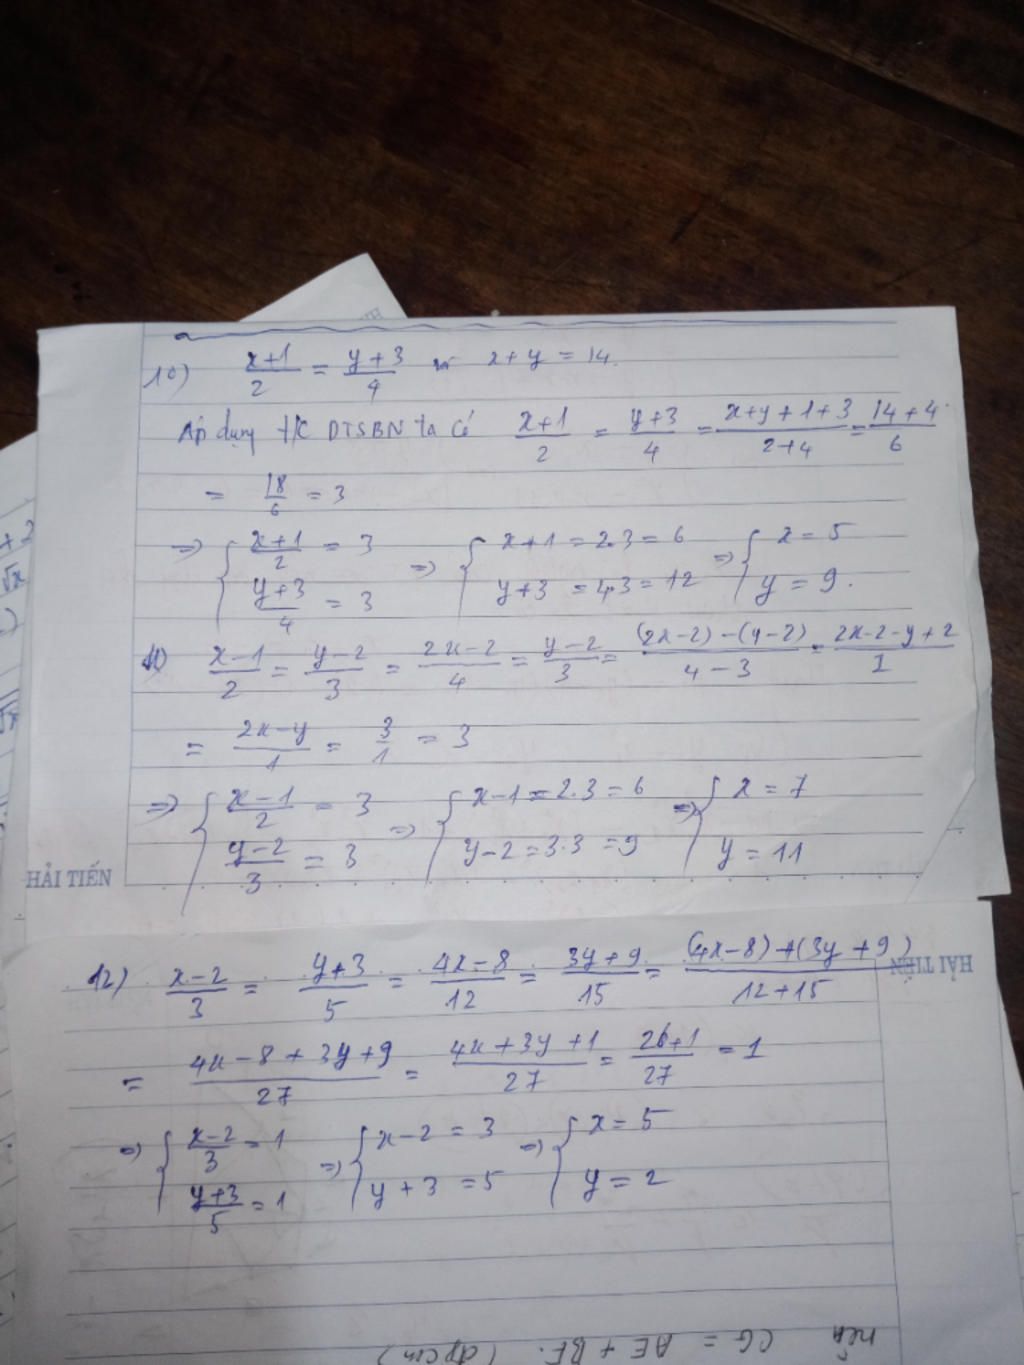 10) \frac{x+1}{2} = \frac{y+3}{4} và x+y = 14.
Áp dụng t/c DTSBN ta có \frac{x+1}{2} = \frac{y+3}{4} = \frac{x+y+1+3}{2+4} = \frac{14+4}{6}
= \frac{18}{6} = 3
=> { \frac{x+1}{2} = 3 => { x+1 = 2.3 = 6 => { x = 5
\frac{y+3}{4} = 3 y+3 = 4.3 = 12 y = 9.
11) \frac{x-1}{2} = \frac{y-2}{3} = \frac{2x-2}{4} = \frac{y-2}{3} = \frac{(2x-2)-(y-2)}{4-3} = \frac{2x-2-y+2}{1}
= \frac{2x-y}{1} = \frac{3}{1} = 3
=> { \frac{x-1}{2} = 3 => { x-1 = 2.3 = 6 => { x = 7
\frac{y-2}{3} = 3 y-2 = 3.3 = 9 y = 11
HẢI TIẾN
12) \frac{x-2}{3} = \frac{y+3}{5} = \frac{4x-8}{12} = \frac{3y+9}{15} = \frac{(4x-8)+(3y+9)}{12+15}
HẢI TIẾN
= \frac{4x-8+3y+9}{27} = \frac{4x+3y+1}{27} = \frac{26+1}{27} = 1
=> { \frac{x-2}{3} = 1 => { x-2 = 3 => { x = 5
\frac{y+3}{5} = 1 y+3 = 5 y = 2
nên CG = AE + BF. (đpcm)